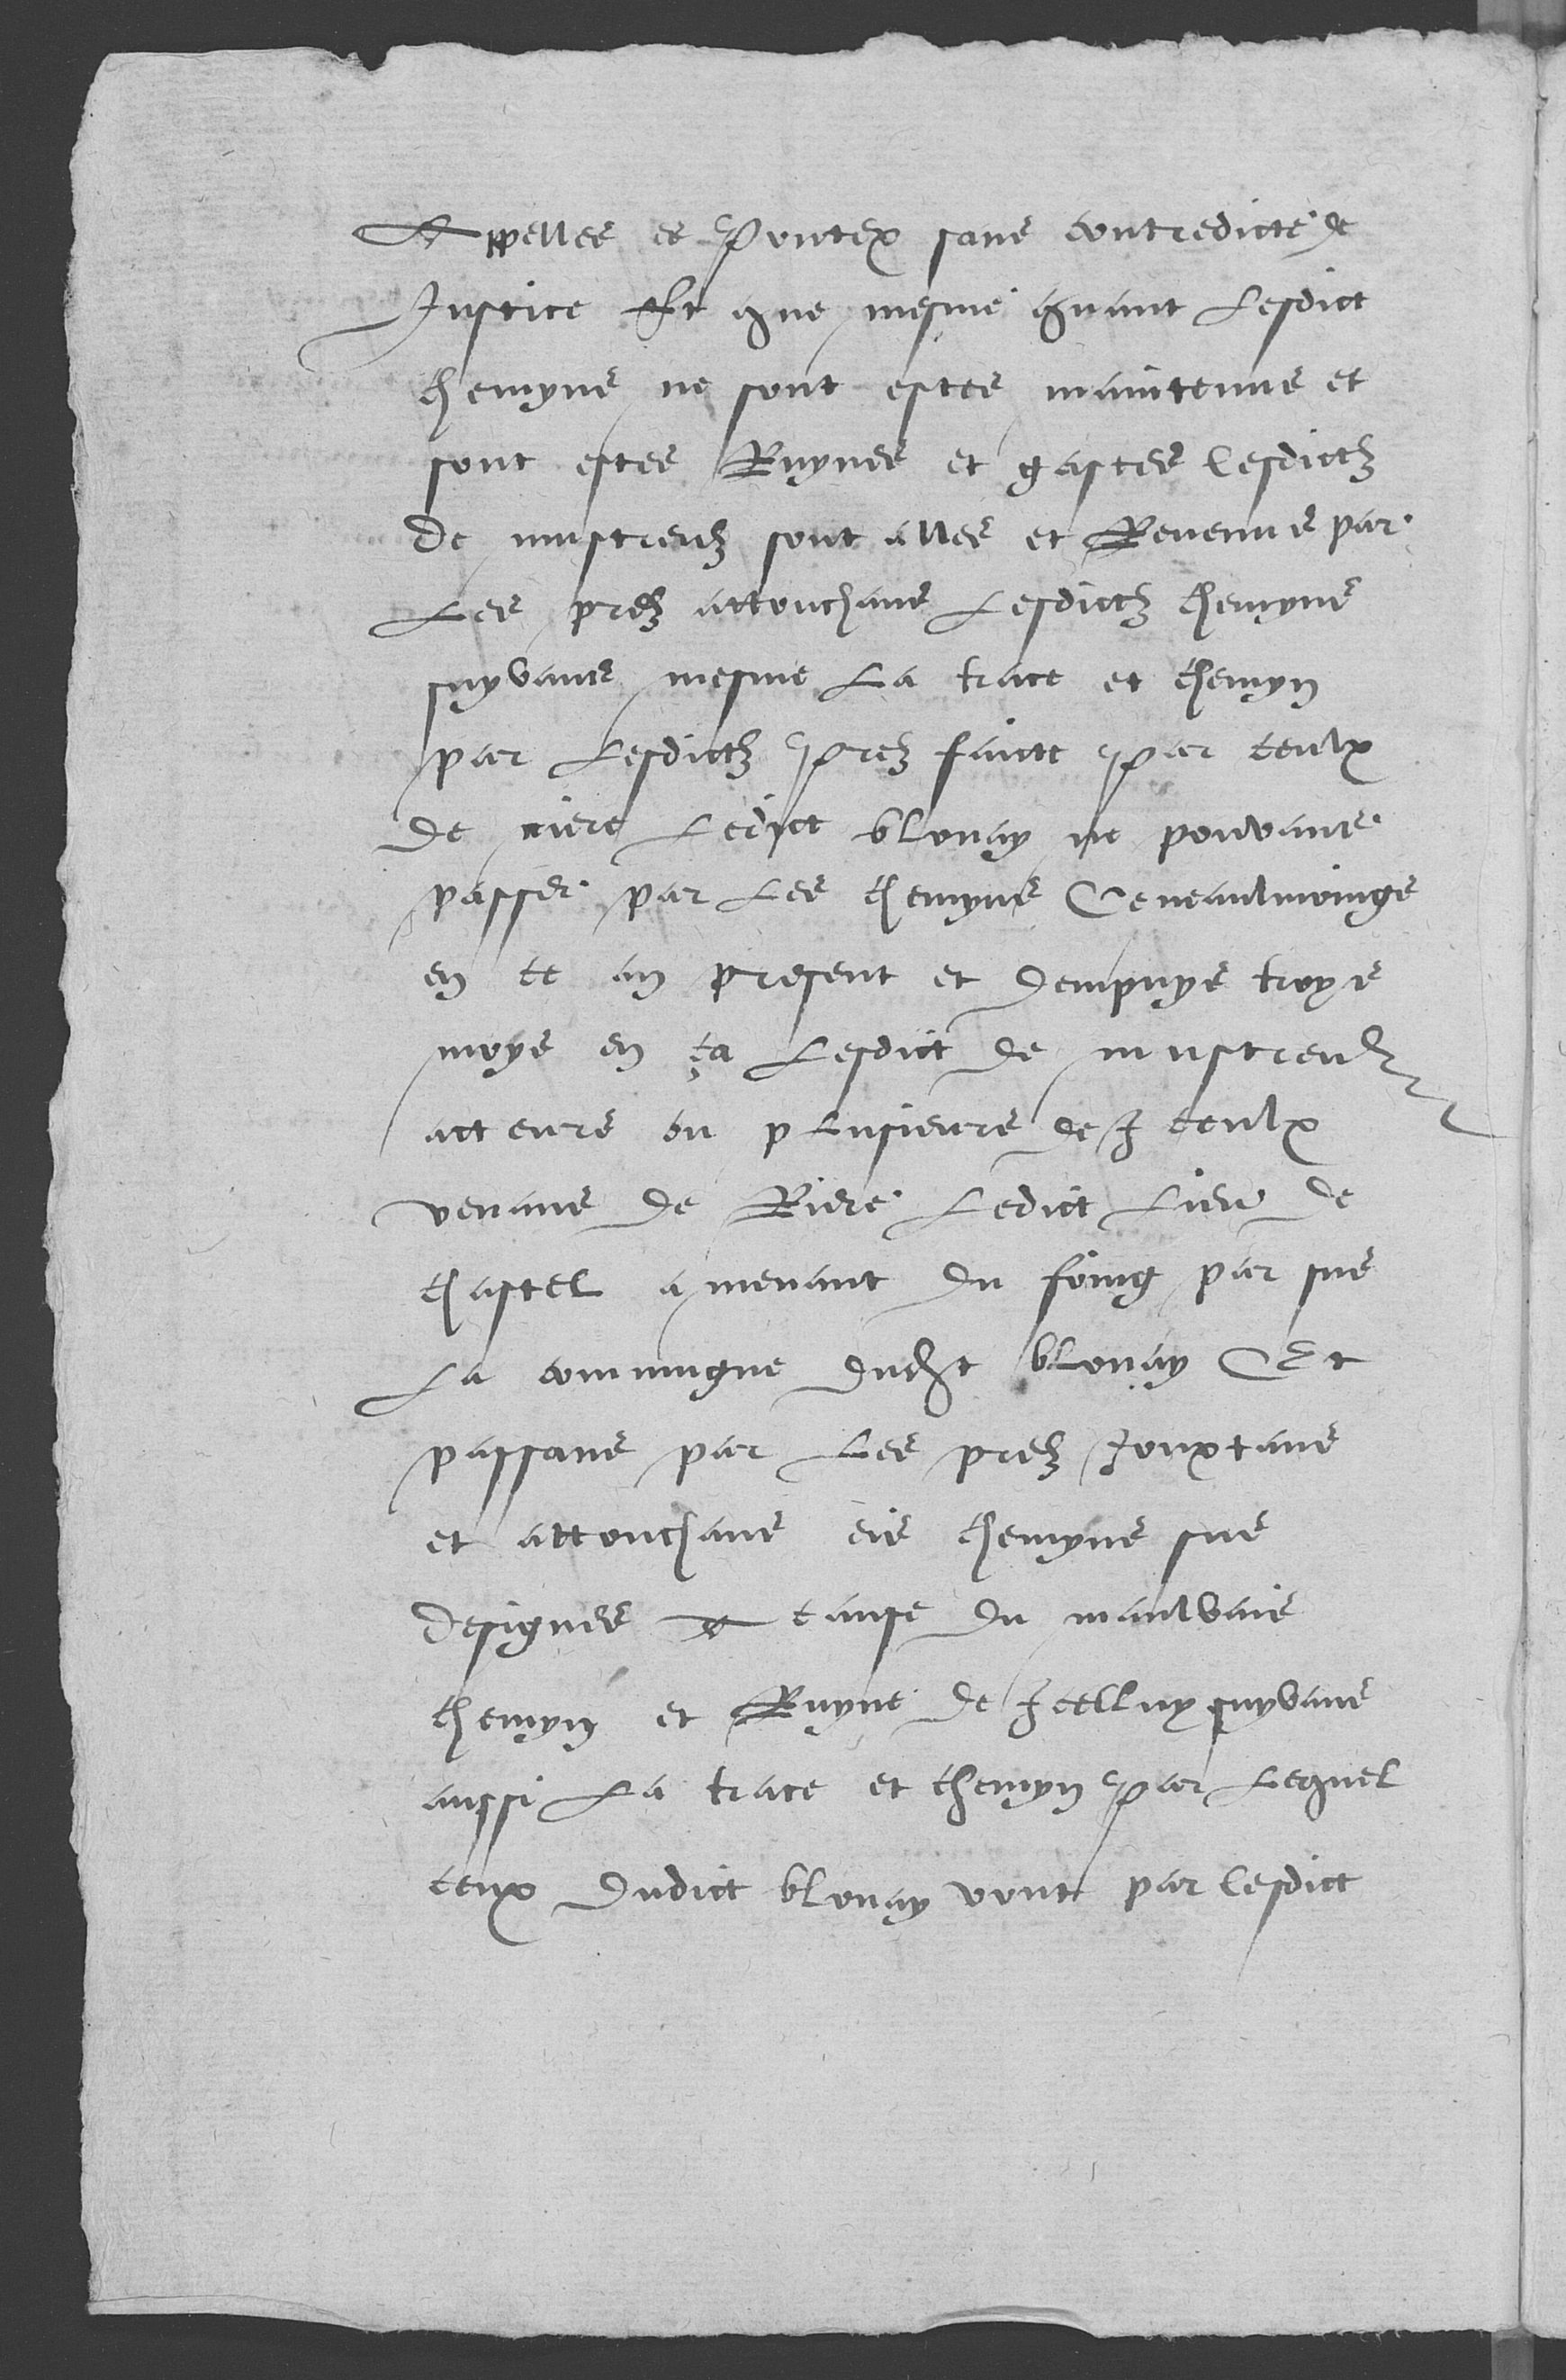 Appelles es Pontex sans contredicte de
Justice Et que mesme quant Lesdict
chemyns ne sont estes maintenus et
sont estes Ruynes et gastes Lesdictz
de mustreulz sont alles et Revenus par
Les prez attouchans Lesdictz chemyns
suyvans mesme La trace et chemyn
par Lesdictz Prez faicte Par ceulx
de riere Ledict blonay ne pouvans
passer par Les chemyns Ce neaulmoings
en ce an present et dempuys troys
moys en ça Lesdict de mustreulz
acteurs ou plusieurs de Iceulx
venans de Riere Ledict Lieu de
chastel amenant du foing par sus
La commugne dudict blonay Et
passans par Les prez Jouxtans
et attouchans eis chemyns sus
designes A cause du maulvais
chemyn et Ruyne de Icelluy suyvans
aussi La trace et chemyn Par Lequel
ceux dudict blonay vont par Lesdict